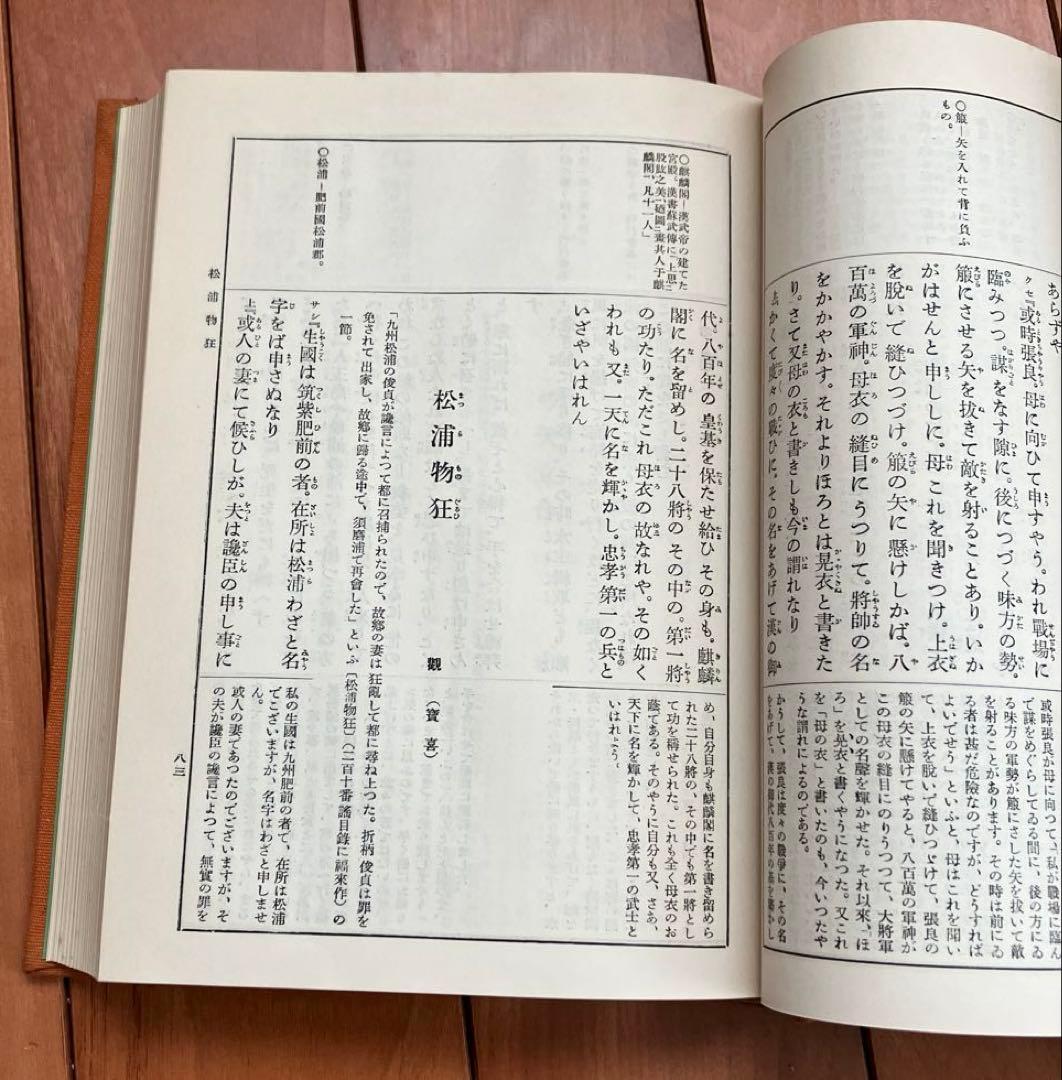 〇箙―矢を入れて背に負ふ
もの。
あらずや
クセ『或時張良、母に向ひて申すやう。われ戰場に
臨みつつ。謀をなす隙に。後につづく味方の勢。
箙にさせる矢を抜きて敵を射ることあり。いか
がはせんと申ししに。母これを聞きつけ。上衣
を脱いで縫ひつづけ。箙の矢に懸けしかば。八
百萬の軍神。母衣の縫目にうつりて。將帥の名
をかかやかす。それよりほろとは晃衣と書きた
り。さて又母の衣と書きしも今の謂れなり
上かくて度々の戰ひに。その名をあげて漢の御
或時張良が母に向つて、「私が戰場に臨ん
で謀をめぐらしてゐる間に、後の方にゐ
る味方の軍勢が箙にさした矢を抜いて敵
を射ることがあります。その時は前にゐ
る者は甚だ危險なのですが、どうすれば
よいでせう」といふと、母はこれを聞い
て、上衣を脱いで縫ひつゞけて、張良の
箙の矢に懸けてやると、八百萬の軍神が
この母衣の縫目にのりうつつて、大將軍
としての名聲を輝かせた。それ以來、「ほ
ろ」を晃衣と書くやうになつた。又これ
を「母の衣」と書いたのも、今いつたや
うな謂れによるのである。
かうして、張良は度々の戰爭に、その名
をあげて、漢の御代八百年の基を築かし
〇麒麟閣―漢武帝の建てた
宮殿。漢書蘇武傳に「上思二
股肱之美一廼圖二畫其人于麒
麟閣一、凡十一人」
〇松浦―肥前國松浦郡。
代。八百年の皇基を保たせ給ひその身も。麒麟
閣に名を留めし。二十八將のその中の。第一將
の功たり。ただこれ母衣の故なれや。その如く
われも又。一天に名を輝かし。忠孝第一の兵と
いざやいはれん
松浦物狂
觀
(寶喜)
「九州松浦の俊貞が讒言によつて都に召捕られたので、故鄕の妻は狂亂して都に尋ね上つた。折柄俊貞は罪を
免されて出家し、故鄕に歸る途中で、須磨浦で再會した」といふ〔松浦物狂〕(二百十番謠目錄に福來作)の
一節。
サシ『生國は筑紫肥前の者。在所は松浦わざと名
字をば申さぬなり
上『或人の妻にて候ひしが。夫は讒臣の申し事に
め、自分自身も麒麟閣に名を書き留めら
れた二十八將の、その中でも第一將とし
て功を稱せられた。これも全く母衣のお
蔭である。そのやうに自分も又、さあ、
天下に名を輝かして、忠孝第一の武士と
いはれよう。
私の生國は九州肥前の者で、在所は松浦
でございますが、名字はわざと申しませ
ん。
或人の妻であつたのでございますが、そ
の夫が讒臣の讒言によつて、無實の罪を
松浦物狂
八三